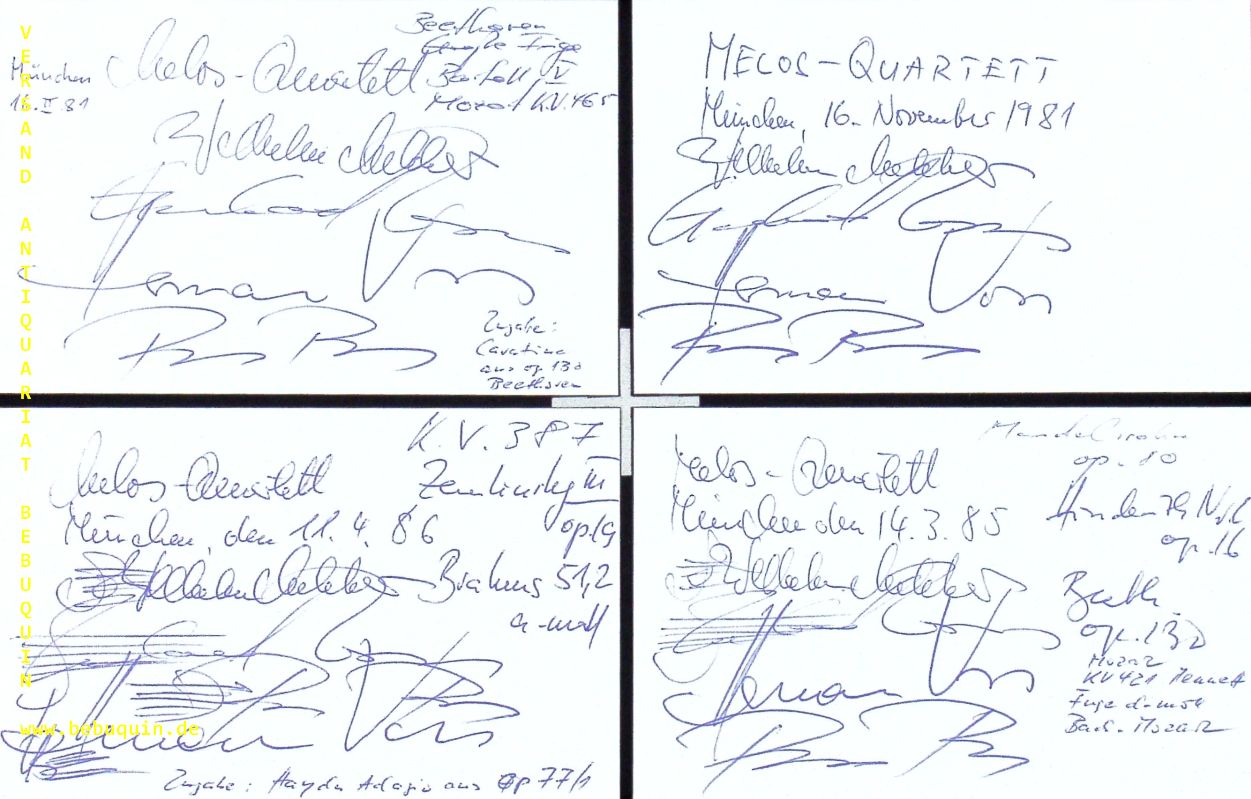 VERSAND ANTIQUARIAT BEBUQUIN
www.bebuquin.de
München
16. II 81
Melos-Quartett
Beethoven
Große Fuge
Bartok V
Mozart K.V. 465
Wilhelm Melcher
Gerhard Voss
Hermann Voss
Peter Buck
Zugabe:
Cavatina
aus op. 130
Beethoven
MELOS-QUARTETT
München, 16. November 1981
Wilhelm Melcher
Gerhard Voss
Hermann Voss
Peter Buck
Melos-Quartett
München, den 11. 4. 86
K.V. 387
Zemlinsky III
op 19
Brahms 51,2
a-moll
Wilhelm Melcher
Gerhard Voss
Hermann Voss
Peter Buck
Zugabe: Haydn Adagio aus Op 77/1
Melos-Quartett
München den 14. 3. 85
Mendelssohn
op. 80
Hindemith
op. 16
Beeth
op. 130
Wilhelm Melcher
Gerhard Voss
Hermann Voss
Peter Buck
Mozart
KV 421 Menuett
Fuge d-moll
Bach-Mozart